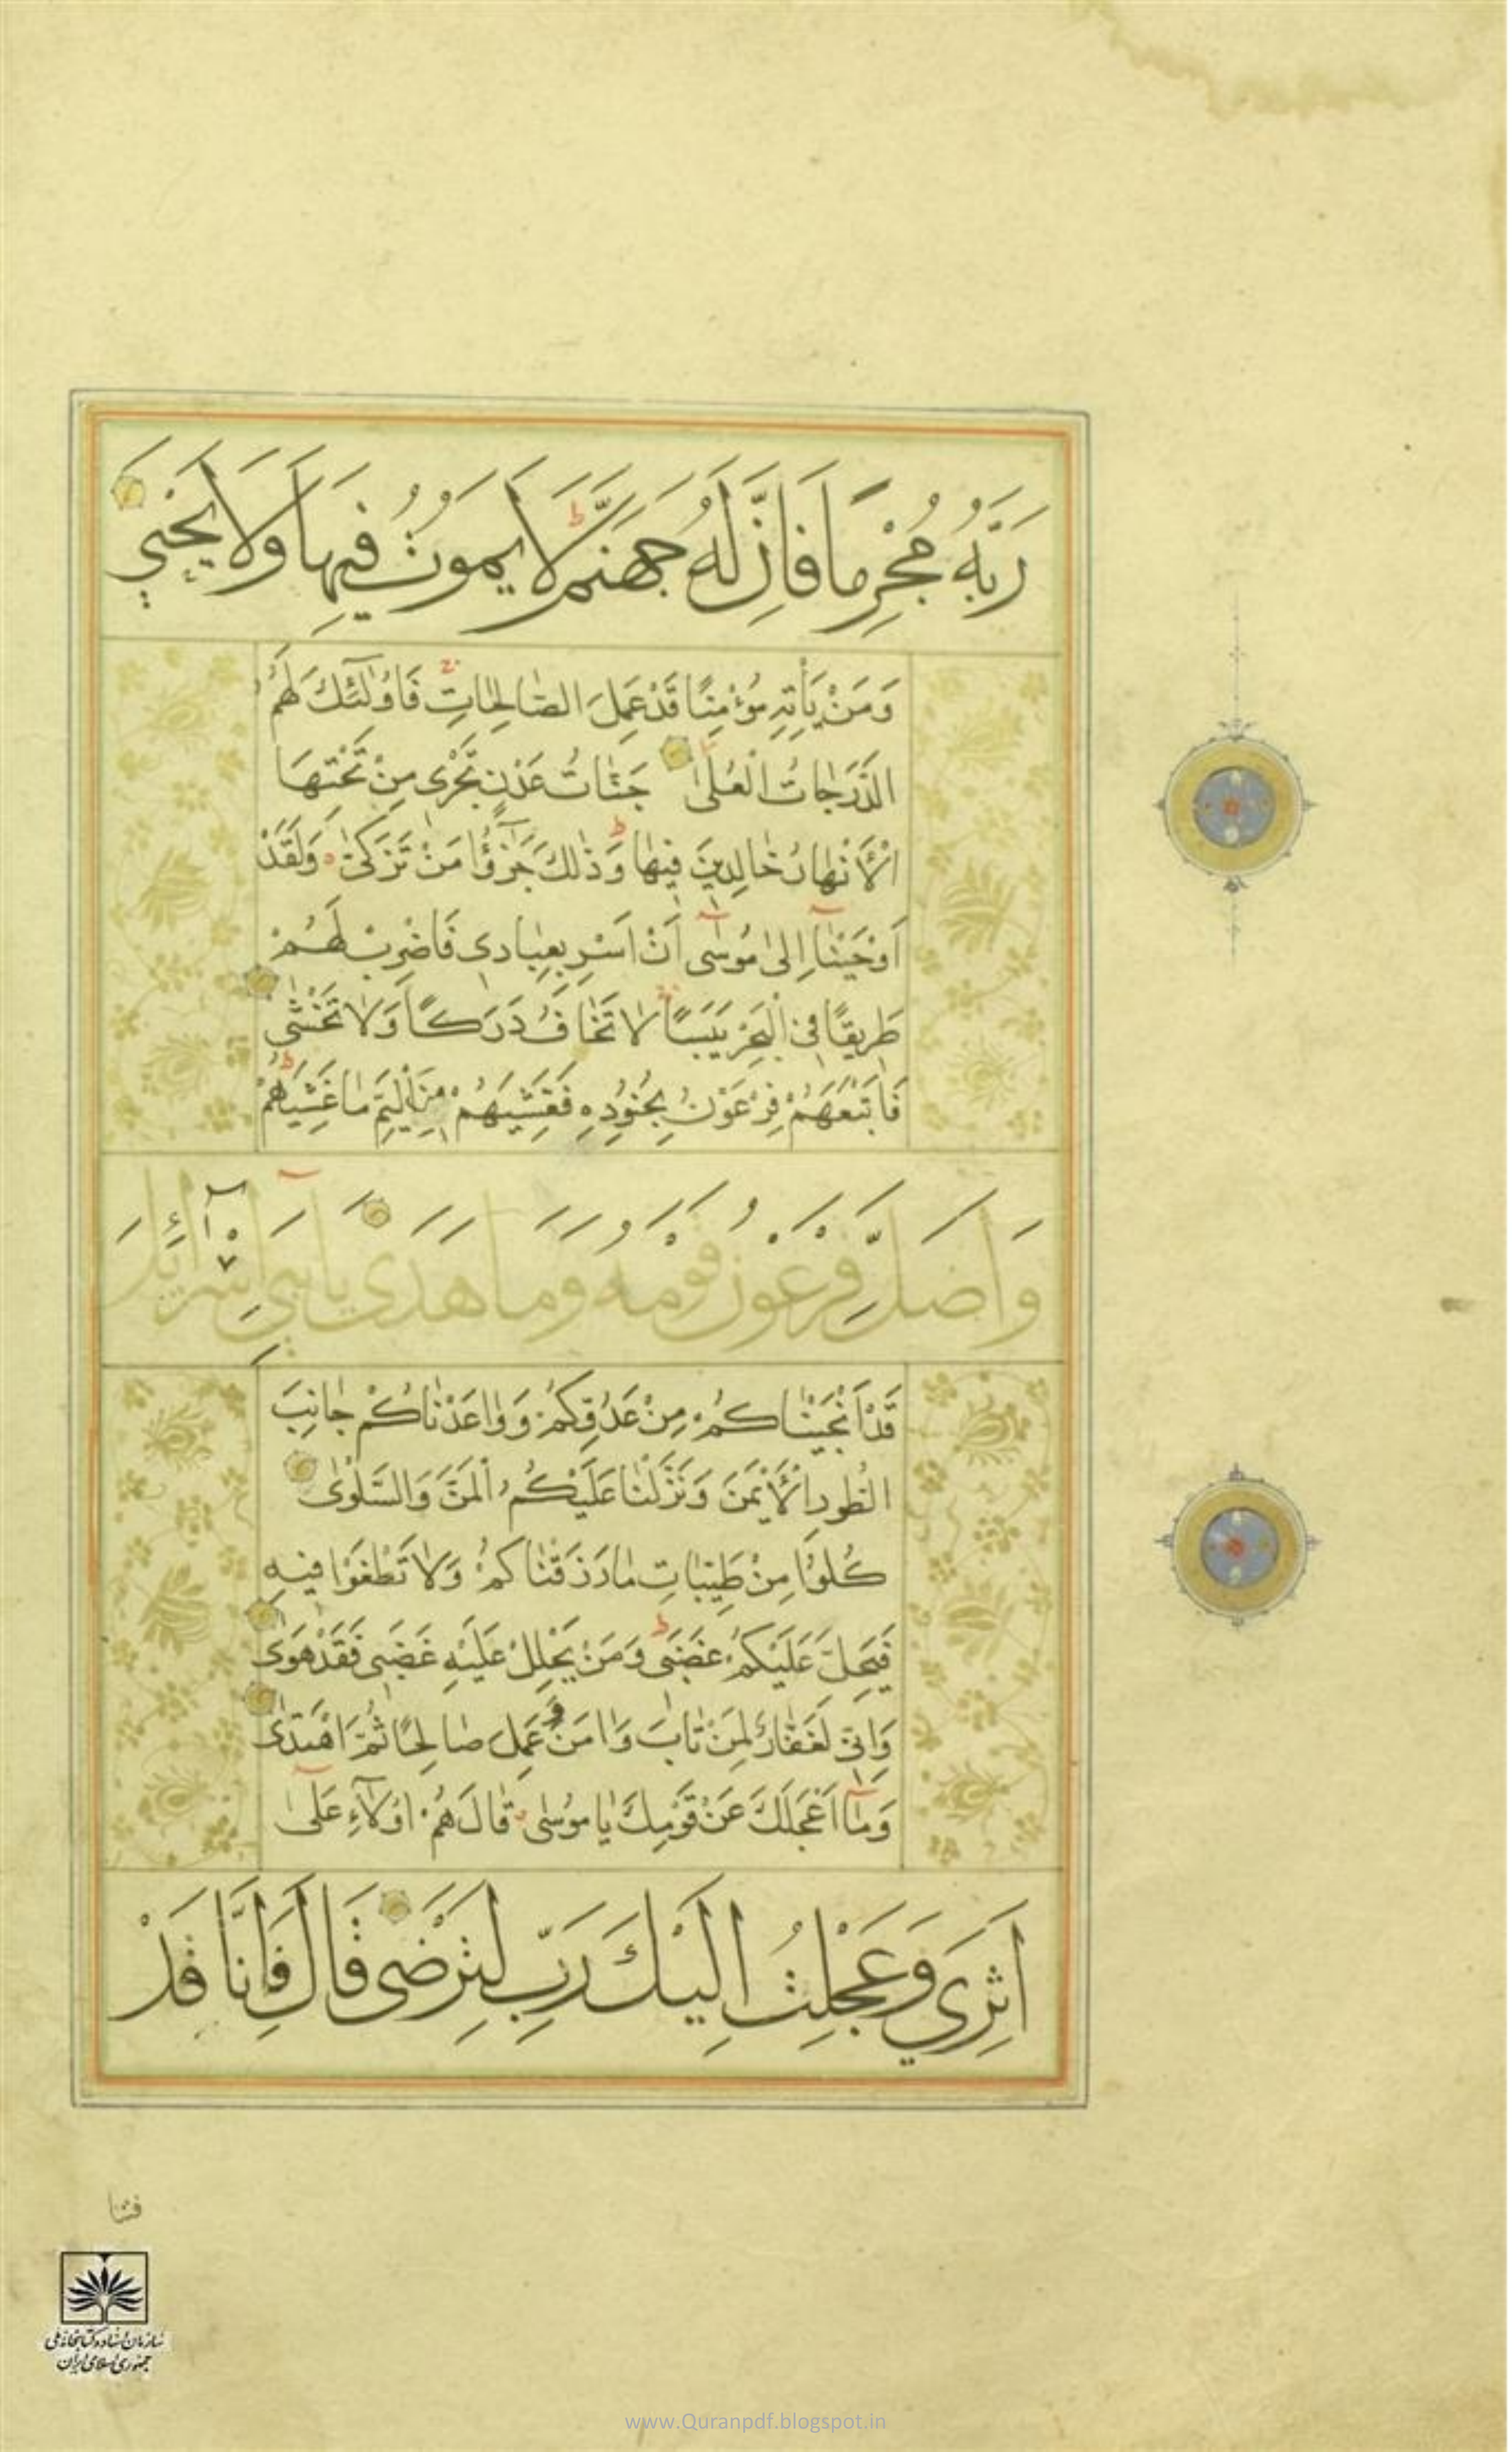 رَبَّهُ مُجْرِمًا فَاِنَّ لَهُ جَهَنَّمَ لَا يَمُوتُ فِيهَا وَلَا يَحْيٰي
وَمَنْ يَأْتِهِ مُؤْمِنًا قَدْ عَمِلَ الصَّالِحَاتِ فَاُولٰٓئِكَ لَهُمُ
الدَّرَجَاتُ الْعُلٰى جَنَّاتُ عَدْنٍ تَجْرٖى مِنْ تَحْتِهَا
الْاَنْهَارُ خَالِدِينَ فِيهَا وَذٰلِكَ جَزٰٓؤُا مَنْ تَزَكّٰى وَلَقَدْ
اَوْحَيْنَآ اِلٰى مُوسٰٓى اَنْ اَسْرِ بِعِبَادٖى فَاضْرِبْ لَهُمْ
طَرِيقًا فِى الْبَحْرِ يَبَسًا لَا تَخَافُ دَرَكًا وَلَا تَخْشٰى
فَاَتْبَعَهُمْ فِرْعَوْنُ بِجُنُودِهٖ فَغَشِيَهُمْ مِنَ الْيَمِّ مَا غَشِيَهُمْ
وَاَضَلَّ فِرْعَوْنُ قَوْمَهُ وَمَا هَدٰى يَا بَنِٓى اِسْرَآئِلَ
قَدْ اَنْجَيْنَاكُمْ مِنْ عَدُوِّكُمْ وَوَاعَدْنَاكُمْ جَانِبَ
الطُّورِ الْاَيْمَنَ وَنَزَّلْنَا عَلَيْكُمُ الْمَنَّ وَالسَّلْوٰى
كُلُوْا مِنْ طَيِّبَاتِ مَا رَزَقْنَاكُمْ وَلَا تَطْغَوْا فِيهِ
فَيَحِلَّ عَلَيْكُمْ غَضَبٖى وَمَنْ يَحْلِلْ عَلَيْهِ غَضَبٖى فَقَدْ هَوٰى
وَاِنّٖى لَغَفَّارٌ لِمَنْ تَابَ وَاٰمَنَ وَ عَمِلَ صَالِحًا ثُمَّ اهْتَدٰى
وَمَآ اَعْجَلَكَ عَنْ قَوْمِكَ يَا مُوسٰى قَالَ هُمْ اُولَآءِ عَلٰٓى
اَثَرِي وَعَجِلْتُ اِلَيْكَ رَبِّ لِتَرْضٰى قَالَ فَاِنَّا قَدْ
فتنا
سازمان اسناد و کتابخانه ملی
جمهوری اسلامی ایران
www.Quranpdf.blogspot.in